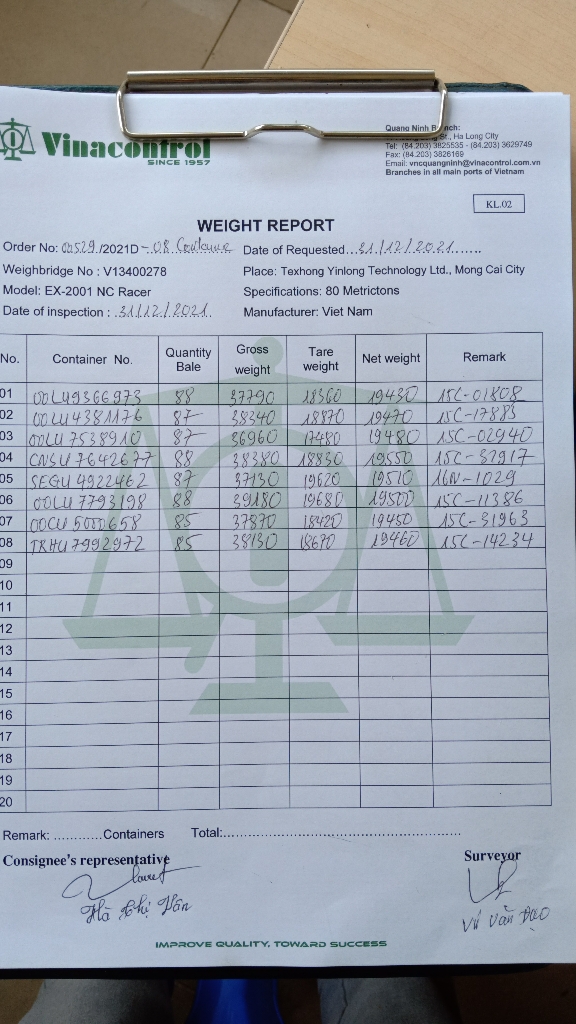 Vinacontrol
SINCE 1957
Quang Ninh Branch:
St., Ha Long City
Tel: (84.203) 3825535 - (84.203) 3629749
Fax: (84.203) 3826169
Email: vncquangninh@vinacontrol.com.vn
Branches in all main ports of Vietnam
KL.02
WEIGHT REPORT
Order No: 00529/2021D - 08 Container Date of Requested...31/12/2021.......
Weighbridge No : V13400278 Place: Texhong Yinlong Technology Ltd., Mong Cai City
Model: EX-2001 NC Racer Specifications: 80 Metrictons
Date of inspection : 31/12/2021 Manufacturer: Viet Nam
No. Container No. Quantity Bale Gross weight Tare weight Net weight Remark
01 OOLU9366973 88 37790 18360 19430 15C-01808
02 OOLU4381176 87 38340 18870 19470 15C-17885
03 OOLU7538910 87 36960 17480 19480 15C-02940
04 CNSU7642677 88 38380 18830 19550 15C-37917
05 SEGU4922462 87 37130 19620 19510 16N-1029
06 OOLU7793198 88 39180 19680 19500 15C-11386
07 OOCU5000658 85 37870 18420 19450 15C-31963
08 TRHU7992972 85 38130 18670 19460 15C-14234
09
10
11
12
13
14
15
16
17
18
19
20
Remark: ............Containers Total:..........................................................
Consignee's representative Surveyor
Hà Thị Vân Vũ Văn Đạo
IMPROVE QUALITY, TOWARD SUCCESS